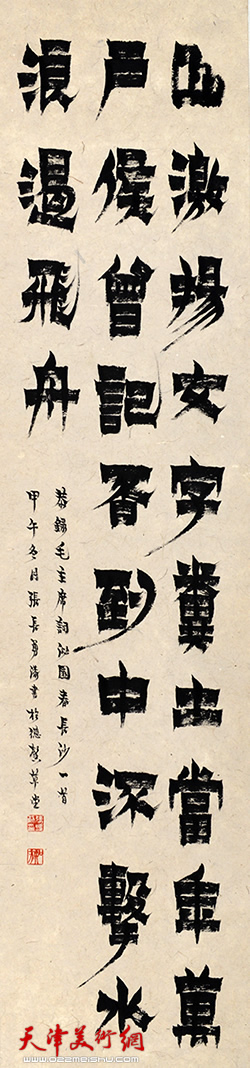 山激揚文字糞土當年萬
戶侯曾記否到中流擊水
浪遏飛舟
恭錄毛主席詞沁園春長沙一首
甲午冬月張長勇濤書於聽馨草堂
天津美術網
www.022meishu.com